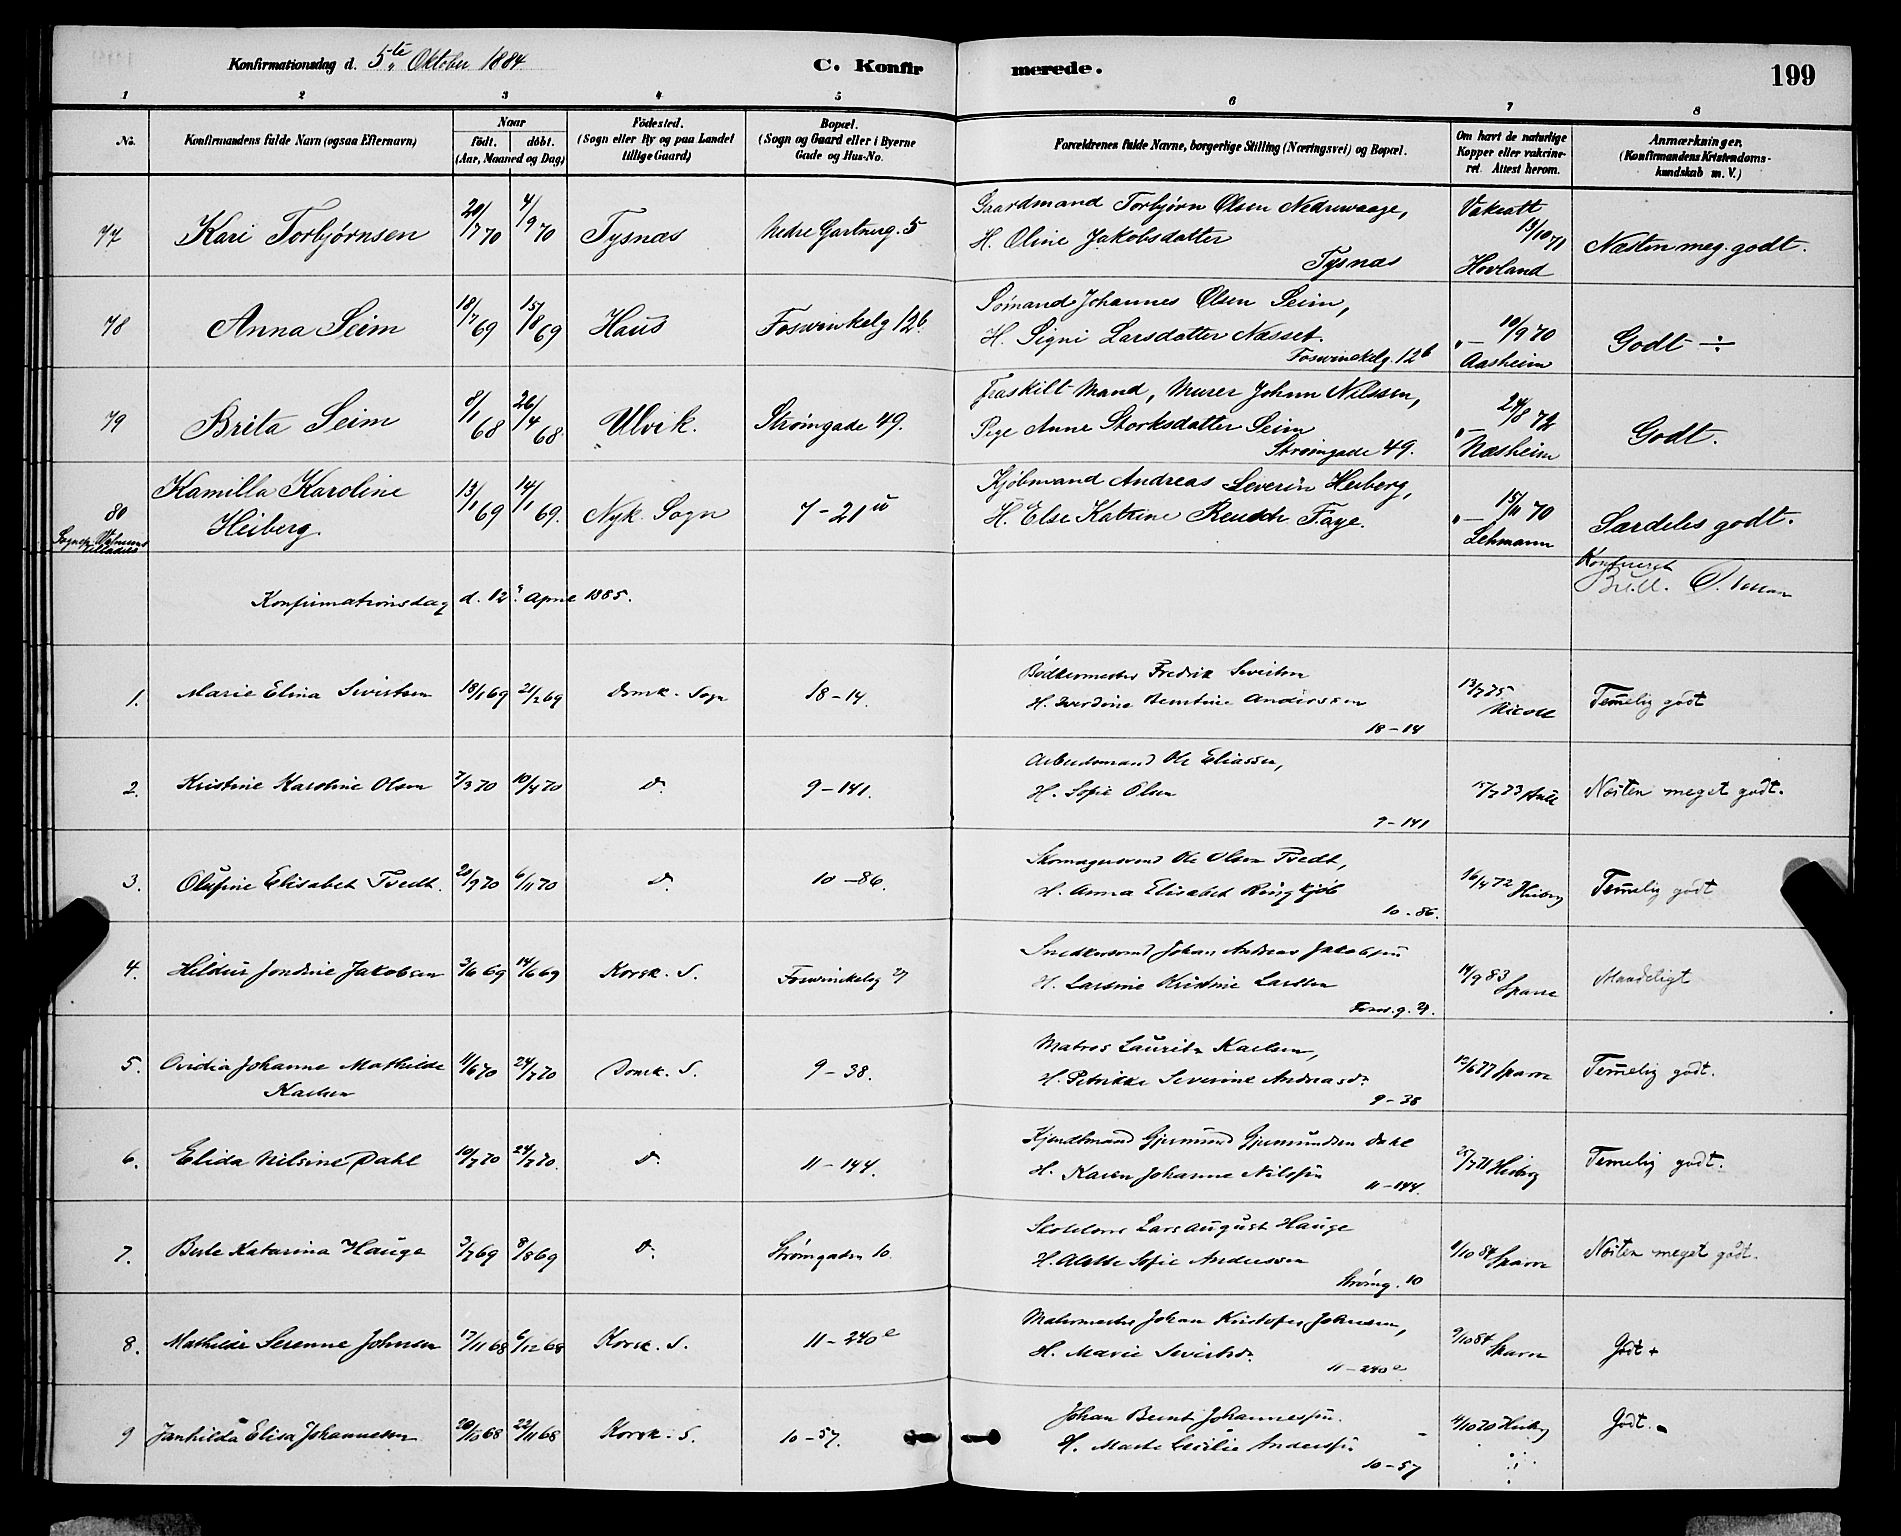 Konfirmationsdag d. 5te Oktober 1884.
C. Konfirmerede.
199
1 2 3 4 5 6 7 8
No.
Konfirmandens fulde Navn (ogsaa Efternavn)
Naar
födt. döbt.
(Aar, Maaned og Dag)
Födested.
(Sogn eller By og paa Landet
tillige Gaard)
Bopæl.
(Sogn og Gaard eller i Byerne
Gade og Hus-No.
Forældrenes fulde Navne, borgerlige Stilling (Næringsvei) og Bopæl.
Om havt de naturlige
Kopper eller vakcine-
ret. Attest herom.
Anmærkninger.
(Konfirmandens Kristendoms-
kundskab m. V.)
77 Kari Torbjørnsen 20/7 70 4/9 70 Tysnæs Nedre Gartnerg. 5
Gaardmand Torbjørn Olsen Nedrewaage,
H. Oline Jakobsdatter
Tysnæs
Vakcatt
13/10 71
Hovland
Næsten meg. godt.
78 Anna Seim 18/7 69 15/8 69 Haus Foswinkelg 12b
Sømand Johannes Olsen Seim,
H. Signi Larsdatter Næsset.
Foswinckelg. 12b
"— 10/9 70
Aasheim
Godt ÷
79 Brita Seim 8/1 68 26/4 68. Ulvik. Strømgade 49.
Fraskilt Mand, Murer Johan Nilssen,
Pige Anne Storksdatter Seim
Strømgade 49.
"— 24/8 72
Næsheim
Godt.
80 Kamilla Karoline
Heiberg. 13/1 69 14/1 69. Nyk. Sogn 7-21
Kjøbmand Andreas Severin Heiberg,
H. Else Katrine Reusch Faye.
"— 15/11 70
Lehmann
Særdeles godt.
Konfirmationsdag d. 12. April 1885.
1. Marie Elina Sivertsen 18/1 69 21/2 69 Domk. Sogn 18-14.
Bødkermester Fredrik Sivertsen
H. Berntine Anderssen
18-14
13/7 75
Temmelig godt
2. Kristine Karoline Olsen 7/3 70 10/4 70 Do. 9-141.
Arbeidsmand Ole Eliassen,
H. Sofie Olsen
9-141
15/7 73
Næsten meget godt.
3. Olufine Elisabet Tvedt. 20/9 70 6/11 70 Do. 10-86.
Skomagersvend Ole Olsen Tvedt,
H. Anna Elisabet Ringkjøb
10-86.
16/4 72 Heiberg
Temmelig godt
4. Hildur Jondine Jakobsen 3/6 69 14/6 69 Korsk. S. Foswinckelg 27
Snedkersvend Johan Andreas Jakobsen
H. Larsine Kristine Larssen
Fosw. g. 27.
14/9 83 Sparre
Maadeligt
5. Ovidia Johanne Mathilde
Karlsen 11/6 70 24/7 70 Domk. S. 9-38.
Matros Lauritz Karlsen,
H. Petrikke Severine Andreasdr
9-38
12/6 77 Sparre
Temmelig godt.
6. Elida Nilsine Dahl 10/7 70 24/7 70. Do. 11-144.
Gjermund Gjermundsen Dahl
H. Karen Johanne Nilssen
11-144.
25/7 71 Heiberg
Temelig godt.
7. Berte Katarina Hauge 3/7 69 8/8 69 Do. Strømgaden 10.
Lars August Hauge
H. Sofie Anderssen
Strømg. 10
9/10 84 Sparre
Næsten meget godt.
8. Mathilde Serenne Johnsen 17/11 68 6/12 68 Korsk. S. 11-240e
Malermester Johan Kristofer Johnsen,
H. Marie Sivertsdr.
11-240e
9/10 84 Sparre
Godt +
9 Janhilda Elisa Johannessen 20/10 68 22/11 68 Korsk. S. 10-57.
Johan Bernt Johannessen.
H. Marte Cecilie Anderssen
10-57
4/10 70 Heiberg
Godt. -